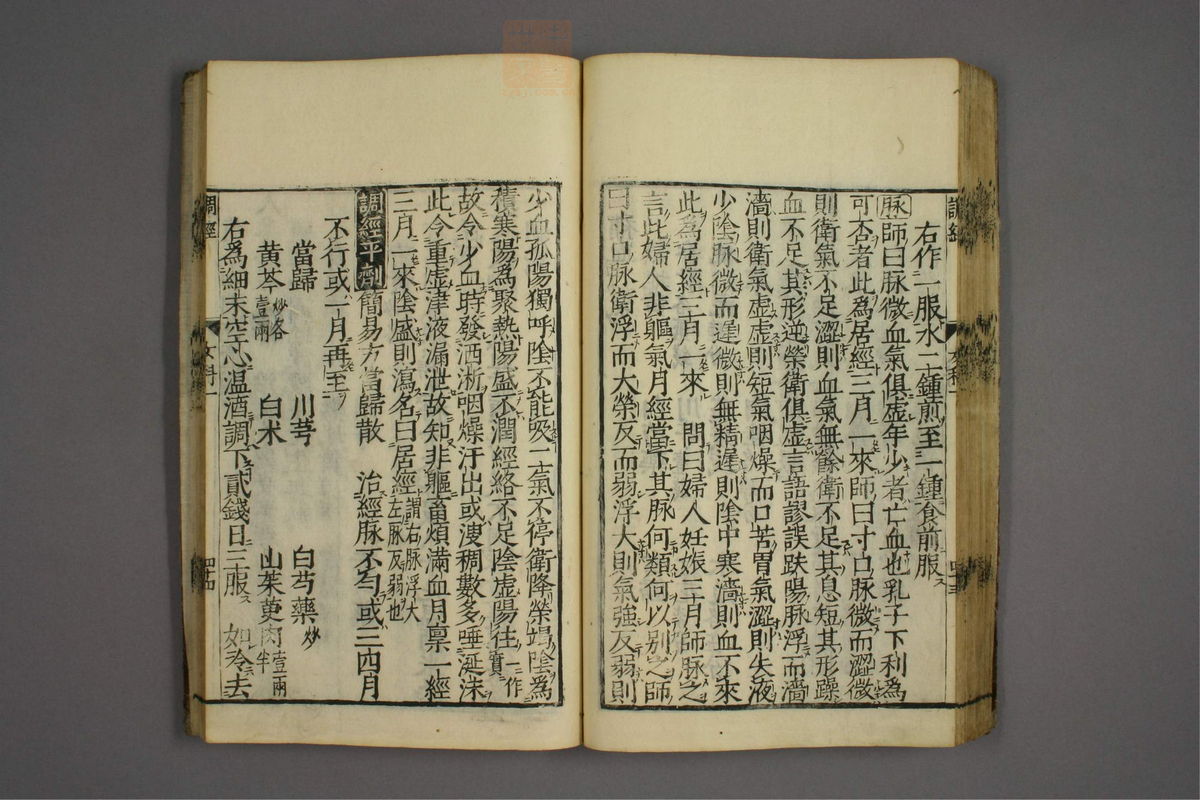 右作一服水二鍾煎至一鍾食前服
脉師曰脉微血氣俱虛年少者亡血也乳子下利爲
可否者此爲居經三月一來師曰寸口脉微而澀微
則衛氣不足澀則血氣無餘衛不足其息短其形躁
血不足其形逆榮衛俱虛言語謬誤趺陽脉浮而濇
濇則衛氣虛虛則短氣咽燥而口苦胃氣澀則失液
少陰脉微而遲微則無精遲則陰中寒濇則血不來
此爲居經三月一來 問曰婦人妊娠三月師脉之
言此婦人非軀氣月經當下其脉何類何以別之師
曰寸口脉衛浮而大榮反而弱浮大則氣強反弱則
少血孤陽獨呼陰不能吸二氣不停衛降榮竭陰爲
積寒陽爲聚熱陽盛不潤經絡不足陰虛陽往一作實
故令少血時發洒淅咽燥汗出或溲稠數多唾涎沫
此令重虛津液漏泄故知非軀畜煩滿血月禀一經
三月一來陰盛則瀉名曰居經謂右脉浮大左脉反弱也
調經平劑簡易方當歸散 治經脉不勻或三四月
不行或一月再至
當歸 川芎 白芍藥炒
黄芩炒各壹兩 白术 山茱萸肉壹兩半
右爲細末空心温酒調下貳錢日三服 如冷去
調經
女科一
四十三
調經
女科一
四十四